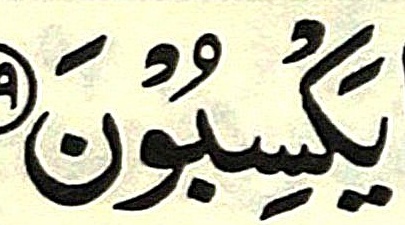 يَكْسِبُوْنَ